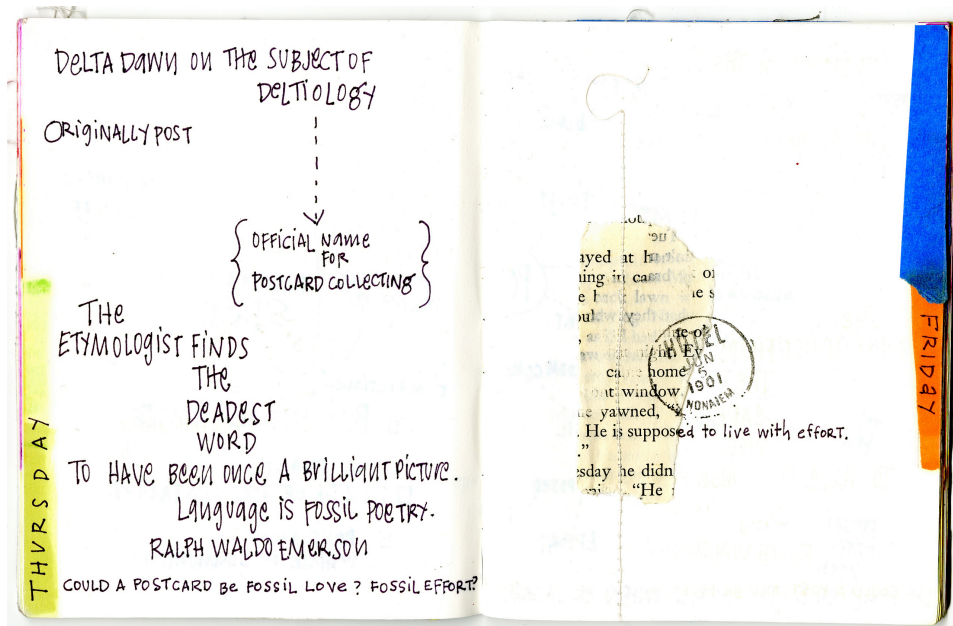 DELTA DAWN ON THE SUBJECT OF
DELTIOLOGY
ORIGINALLY POST
OFFICIAL NAME
FOR
POSTCARD COLLECTING
THE
ETYMOLOGIST FINDS
THE
DEADEST
WORD
TO HAVE BEEN ONCE A BRILLIANT PICTURE.
LANGUAGE IS FOSSIL POETRY.
RALPH WALDO EMERSON
COULD A POSTCARD BE FOSSIL LOVE? FOSSIL EFFORT?
THURSDAY
ayed at
ing it
HOTEL
JUN
5
1901
NONAIEM
home
window.
yawned, "
. He is supposed to live with effort.
."
sday he didn
"He
FRIDAY